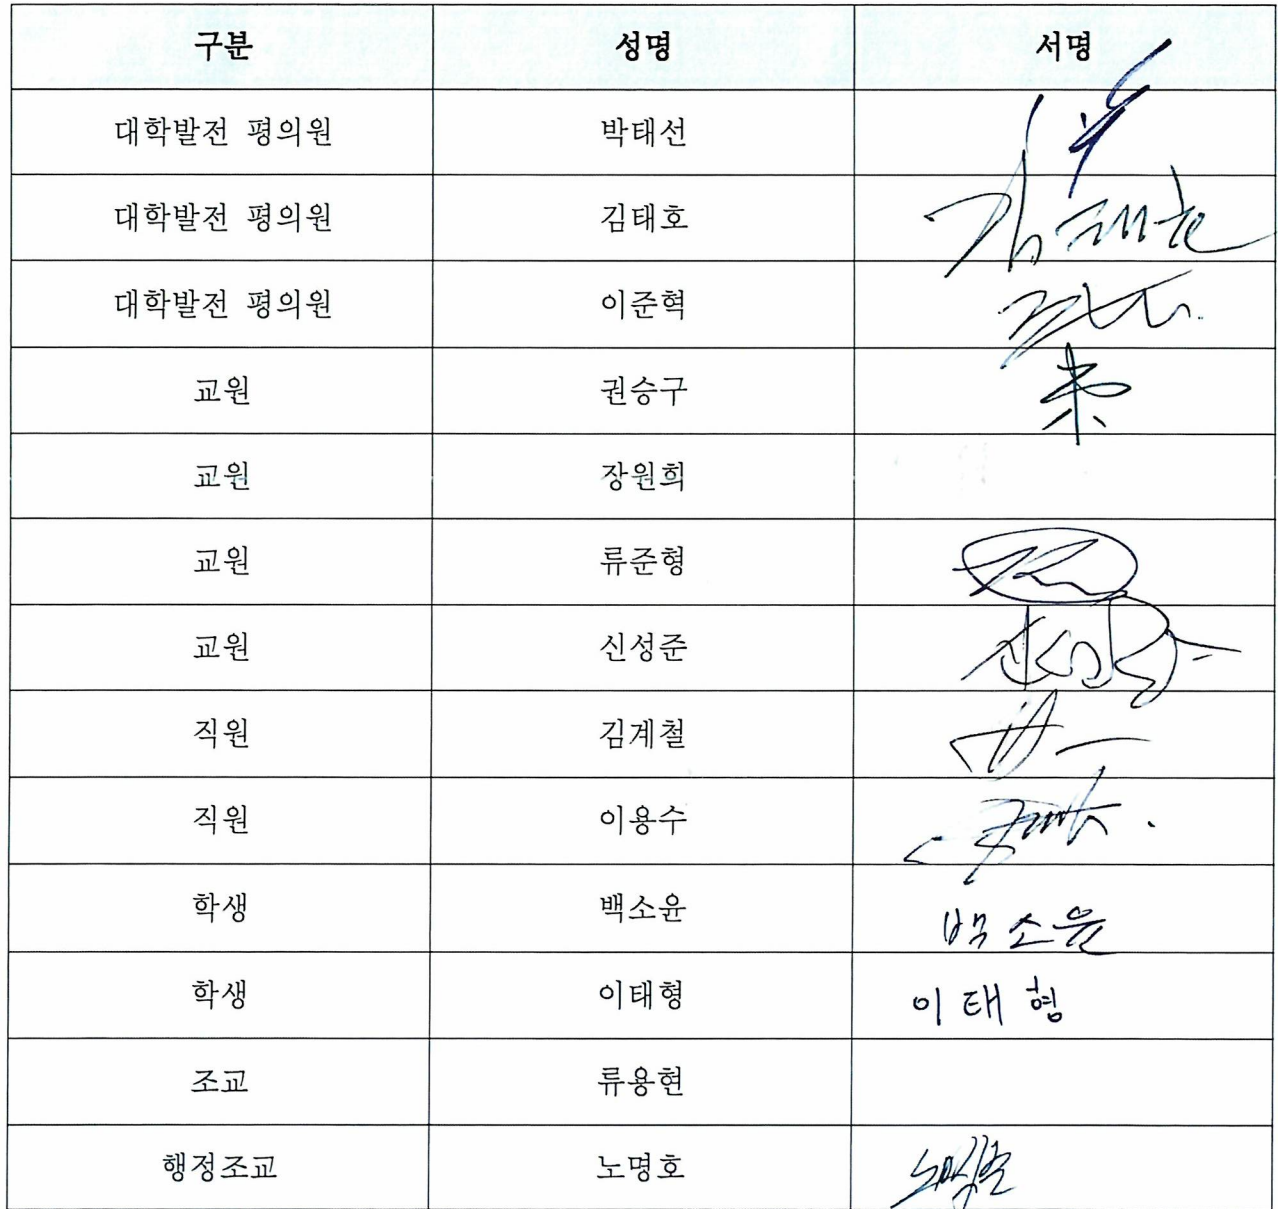 구분 성명 서명
대학발전 평의원 박태선
대학발전 평의원 김태호 김태호
대학발전 평의원 이준혁
교원 권승구
교원 장원희
교원 류준형
교원 신성준
직원 김계철
직원 이용수
학생 백소윤 백소윤
학생 이태형 이태형
조교 류용현
행정조교 노명호 노명호